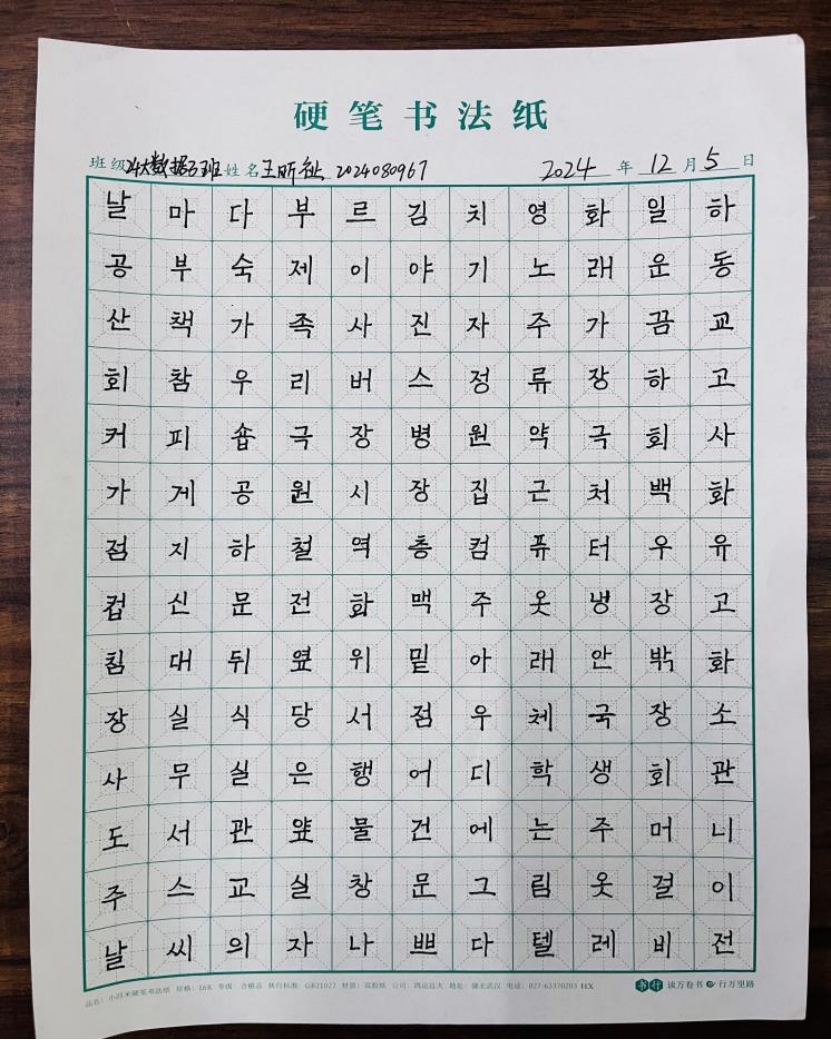 硬笔书法纸
班级 24大数据3班 姓名 王昕祉 2024080967 2024 年 12 月 5 日
날 마 다 부 르 김 치 영 화 일 하
공 부 숙 제 이 야 기 노 래 운 동
산 책 가 족 사 진 자 주 가 끔 교
회 참 우 리 버 스 정 류 장 하 고
커 피 숍 극 장 병 원 약 극 회 사
가 게 공 원 시 장 집 근 처 백 화
점 지 하 철 역 층 컴 퓨 터 우 유
컵 신 문 전 화 맥 주 옷 냉 장 고
침 대 뒤 옆 위 밑 아 래 안 밖 화
장 실 식 당 서 점 우 체 국 장 소
사 무 실 은 행 어 디 학 생 회 관
도 서 관 앞 물 건 에 는 주 머 니
주 스 교 실 창 문 그 림 옷 걸 이
날 씨 의 자 나 쁘 다 텔 레 비 전
读万卷书 行万里路